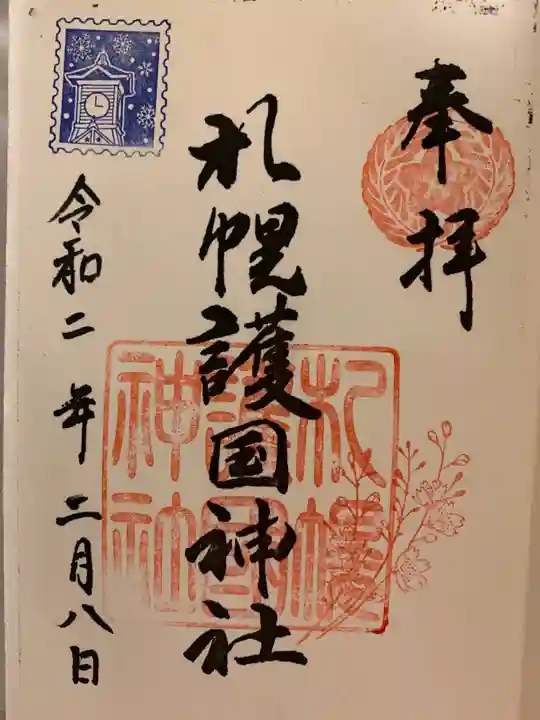 奉拝
札幌護国神社
令和二年二月八日
札幌
護國
神社